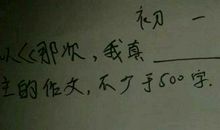 初一
以《那次,我真______
主的作文,不少于500字.